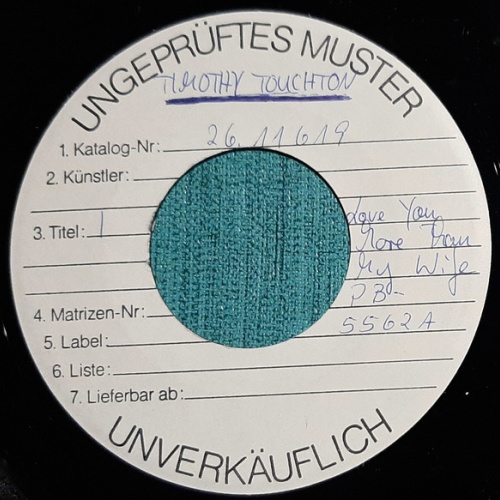 UNGEPRÜFTES MUSTER
TIMOTHY TOUCHTON
1. Katalog-Nr: 26.11619
2. Künstler:
3. Titel: I Love You
More Than
My Wife
PB-
4. Matrizen-Nr: 5562A
5. Label:
6. Liste:
7. Lieferbar ab:
UNVERKÄUFLICH